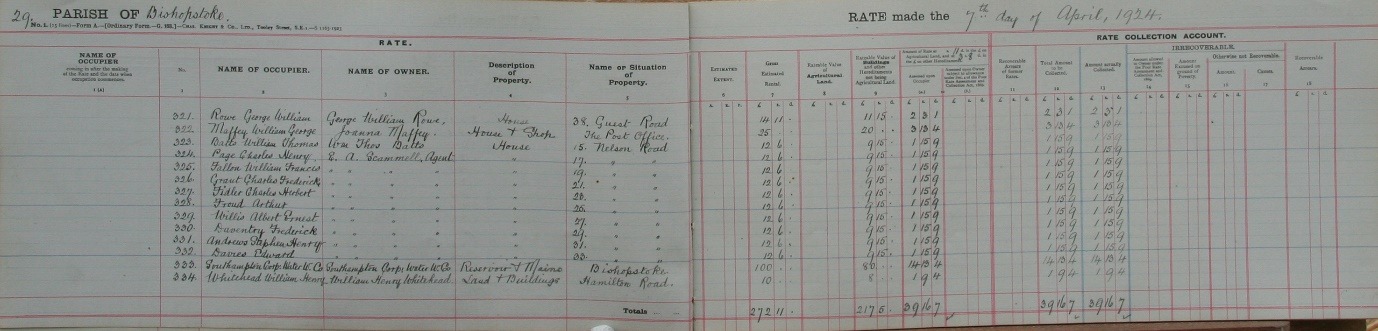 29. PARISH OF Bishopstoke.
RATE made the 7th day of April, 1924.
RATE.
RATE COLLECTION ACCOUNT.
IRRECOVERABLE.
NAME OF OCCUPIER
No.
NAME OF OCCUPIER.
NAME OF OWNER.
Description of Property.
Name or Situation of Property.
ESTIMATED EXTENT.
Gross Estimated Rental.
Rateable Value of Agricultural Land.
Rateable Value of Buildings and other Hereditaments not being Agricultural Land.
Total Amount to be Collected.
Amount actually Collected.
Otherwise not Recoverable.
Amount.
Causes.
321. Rowe George William George William Rowe. House 38, Guest Road 14 11 11 15 2 3 1 2 3 1 2 3 1
322. Maffey William George Joanna Maffey. House + Shop The Post Office. 25 20 3 13 4 3 13 4 3 13 4
323. Batts William Thomas Wm Thos Batts House 15. Nelson Road 12 6 9 15 1 15 9 1 15 9 1 15 9
324. Page Charles Henry. E. A. Scammell, Agent " 17. " " 12 6 9 15 1 15 9 1 15 9 1 15 9
325. Fallon William Francis " " " " 19. " " 12 6 9 15 1 15 9 1 15 9 1 15 9
326. Grant Charles Frederick " " " " 21. " " 12 6 9 15 1 15 9 1 15 9 1 15 9
327. Fidler Charles Herbert " " " " 23. " " 12 6 9 15 1 15 9 1 15 9 1 15 9
328. Froud Arthur " " " " 25. " " 12 6 9 15 1 15 9 1 15 9 1 15 9
329. Willis Albert Ernest " " " " 27. " " 12 6 9 15 1 15 9 1 15 9 1 15 9
330. Daventry Frederick " " " " 29. " " 12 6 9 15 1 15 9 1 15 9 1 15 9
331. Andrews Stephen Henry " " " " 31. " " 12 6 9 15 1 15 9 1 15 9 1 15 9
332. Davies Edward " " " " 33. " " 12 6 9 15 1 15 9 1 15 9 1 15 9
333. Southampton Corp. Water W. Co Southampton Corp. Water W. Co Reservoir + Mains Bishopstoke. 100 80 14 13 4 14 13 4 14 13 4
334. Whitehead William Henry William Henry Whitehead Land + Buildings Hamilton Road. 10 8 1 9 4 1 9 4 1 9 4
Totals 272 11 217 5 39 16 7 39 16 7 39 16 7